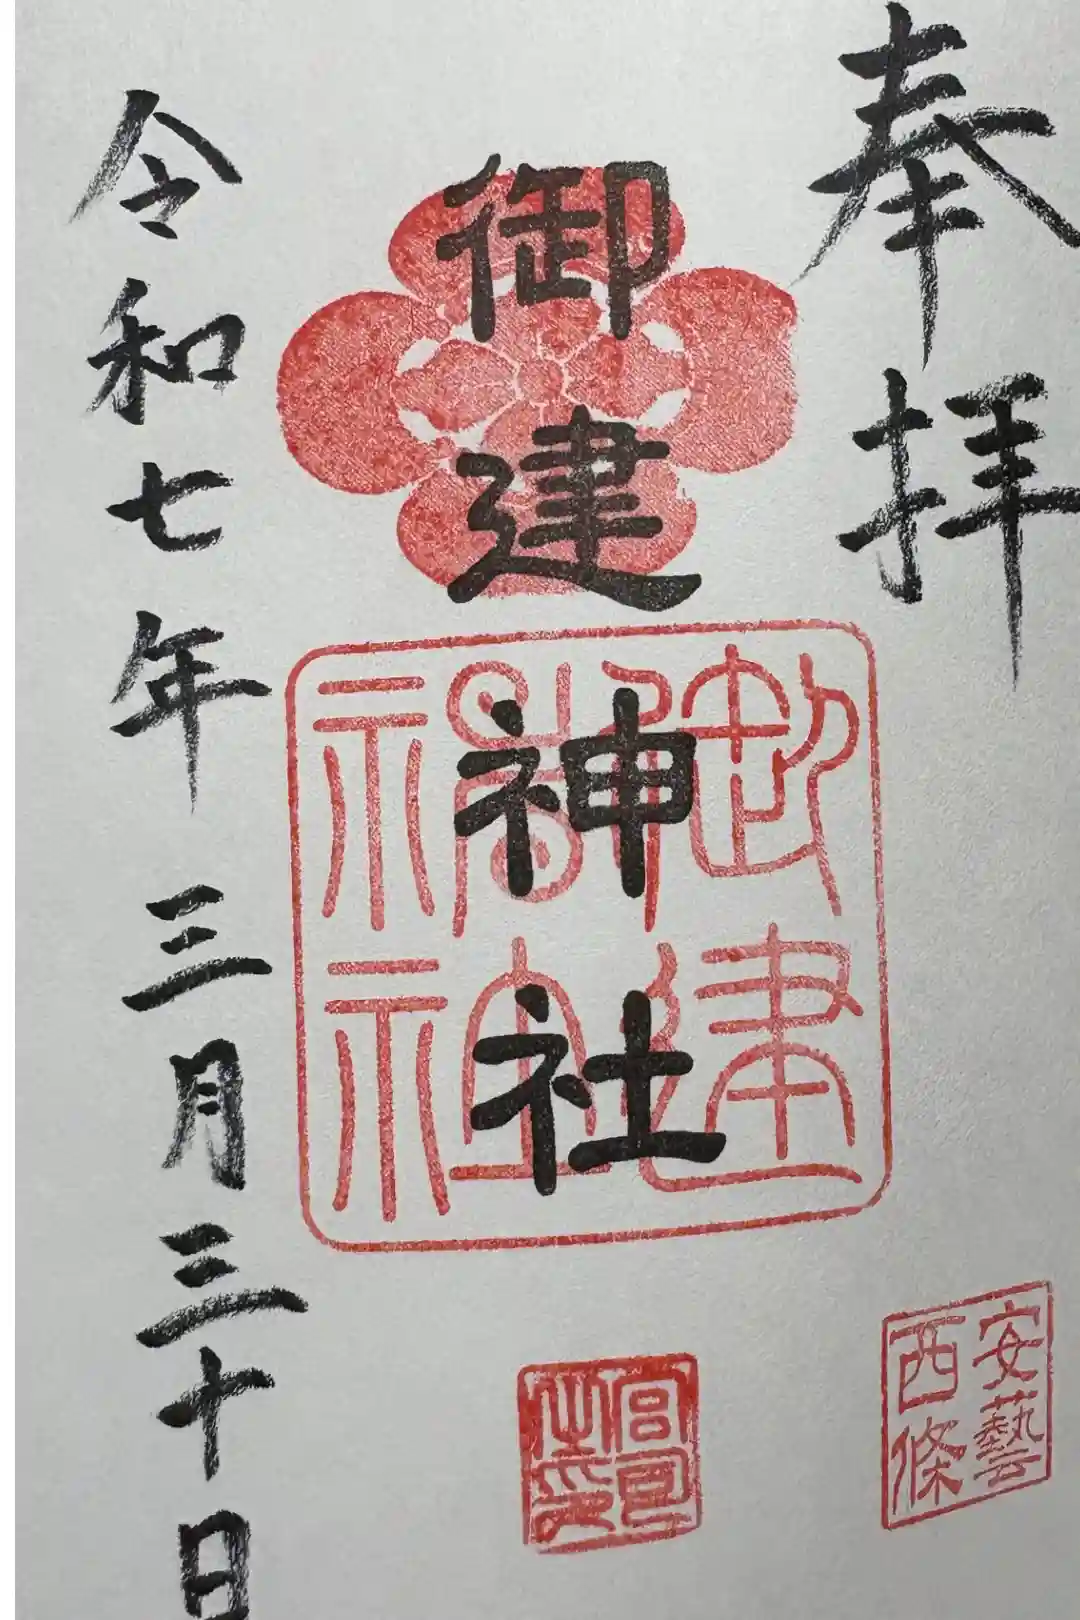 奉拝
御建神社
御建神社
安藝
西條
宮司
之印
令和七年三月三十日